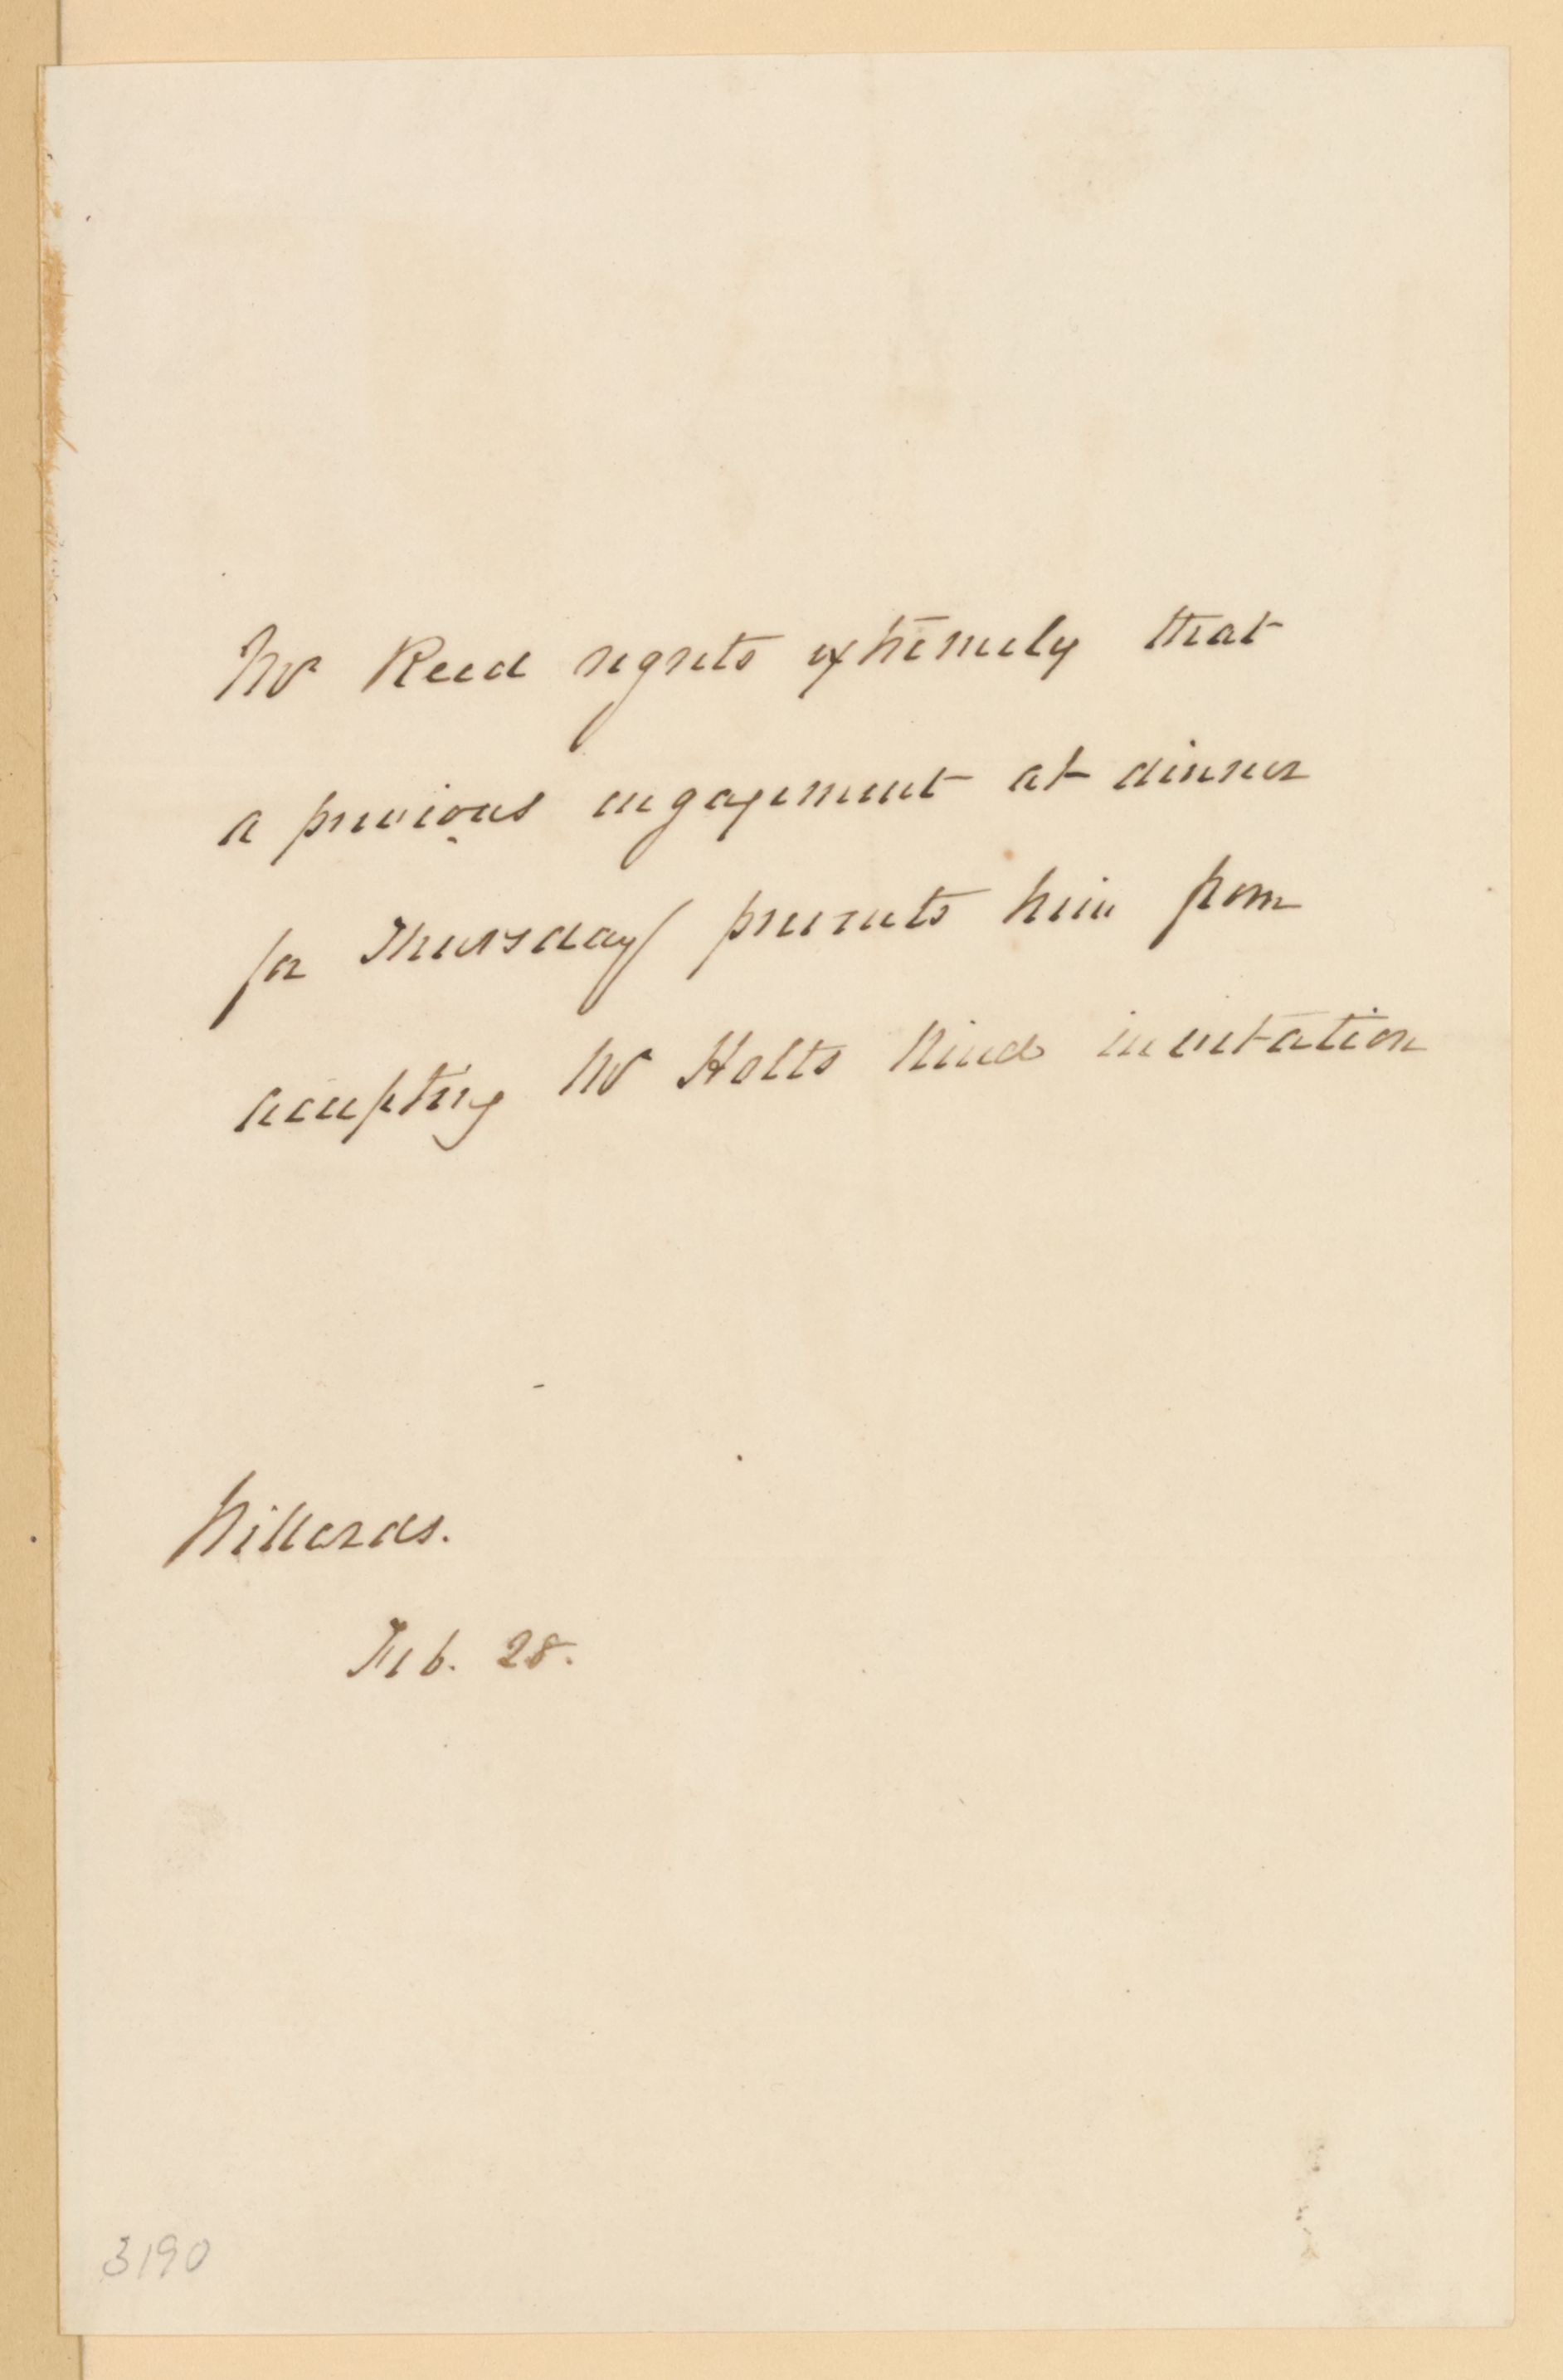 Mr Reed regrets extremely that
a previous engagement at dinner
for Thursday prevents him from
accepting Mr Holts kind invitation
Willards.
Feb. 28.
3190